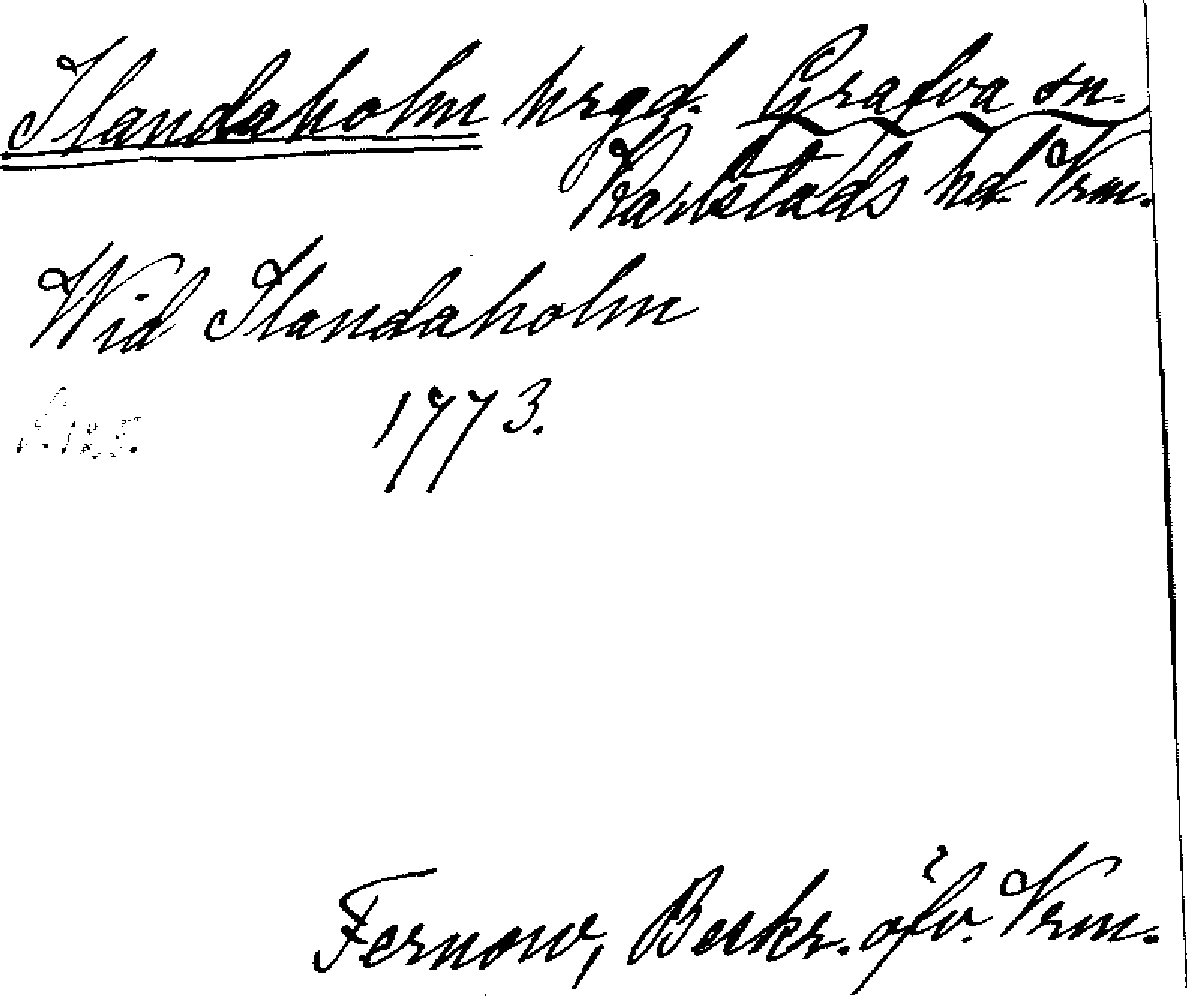 Ilandaholm hrgd. Grafva sn.
Karlstads hd. Vrm.
Wid Ilandaholm
1773.
Fernow, Beskr. öfv. Vrm.